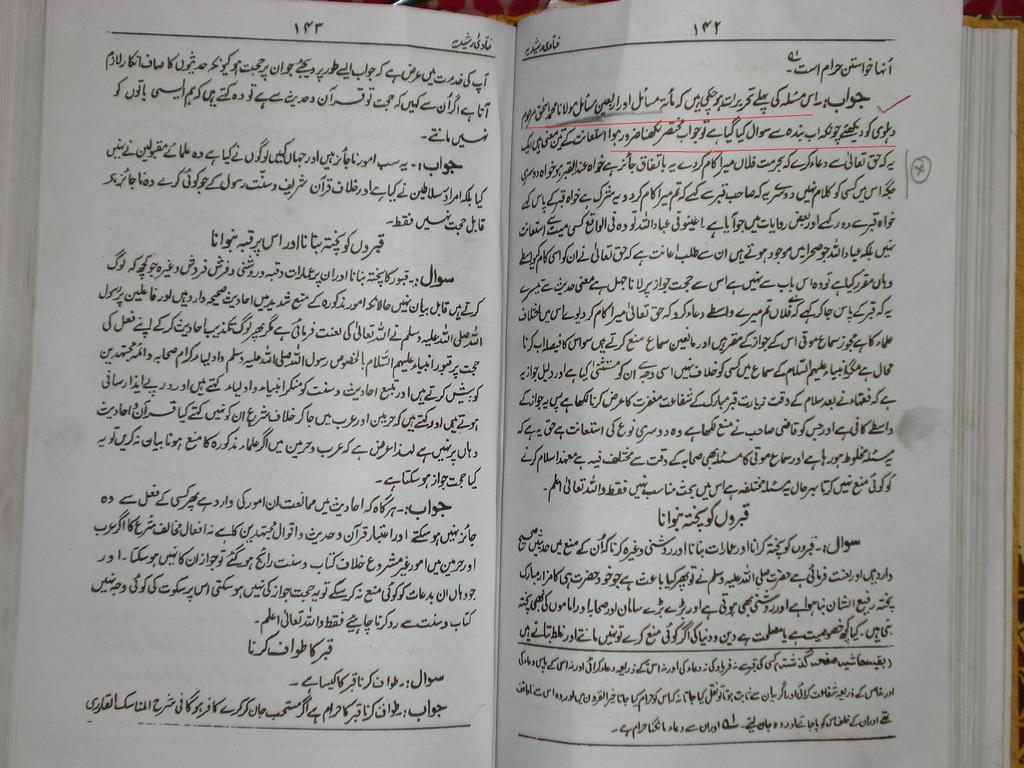 ۱۴۲
فتاویٰ رشیدیہ
اُنہا خواستن حرام است ؎۱۔
جواب:۔ اس مسئلہ کی پہلے تحریرات ہو چکی ہیں کہ مأتہ مسائل اور اربعین مسائل مولانا محمد اسحٰق مرحوم
دہلوی کو دیکھئے چونکہ اب بندہ سے سوال کیا گیا ہے تو جواب مختصر لکھنا ضرور ہوا استعانت کے تین معنی ہیں ایک
یہ کہ حق تعالیٰ سے دعاء کرے کہ بحرمت فلاں میرا کام کر دے یہ باتفاق جائز ہے خواہ عند القبر ہو خواہ دوسری
جگہ اس میں کسی کو کلام نہیں دوسرے یہ کہ صاحب قبر سے کہے کہ تم میرا کام کر دو یہ شرک ہے خواہ قبر کے پاس کہے
خواہ قبر سے دور کہے اور بعض روایات میں جو آیا ہے اعینونی عباد اللہ تو وہ فی الواقع کسی میت سے استعانت
نہیں بلکہ عباد اللہ جو صحرا میں موجود ہوتے ہیں ان سے طلب اعانت ہے کہ حق تعالیٰ نے ان کو اسی کام کے واسطے
وہاں مقرر کیا ہے تو وہ اس باب سے نہیں ہے اس سے حجت جواز پر لانا جہل ہے معنی حدیث سے تیسرے
یہ کہ قبر کے پاس جا کر کہے کہ اے فلاں تم میرے واسطے دعاء کرو کہ حق تعالیٰ میرا کام کر دیوے اس میں اختلاف
علماء کا ہے مجوز سماع موتی اس کے جواز کے مقر ہیں اور مانعین سماع منع کرتے ہیں سو اس کا فیصلہ اب کرنا
محال ہے مگر انبیاء علیہم السلام کے سماع میں کسی کو خلاف نہیں اسی وجہ سے ان کو مستثنیٰ کیا ہے اور دلیل جواز یہ
ہے کہ فقہاء نے بعد سلام کے وقت زیارت قبر مبارک کے شفاعت مغفرت کا عرض کرنا لکھا ہے پس یہ جواز کے
واسطے کافی ہے اور جس کو قاضی صاحب نے منع لکھا ہے وہ دوسری نوع کی استعانت ہے حق یہ ہے کہ
یہ مسئلہ مخلوط ہو رہا ہے اور سماع موتی کا مسئلہ بھی صحابہ کے وقت سے مختلف فیہ ہے معہذا سلام کرنے
کو کوئی منع نہیں کرتا بہر حال یہ مسئلہ مختلفہ ہے اس میں بحث مناسب نہیں فقط واللہ تعالیٰ اعلم۔
قبروں کو پختہ بنوانا
سوال:۔ قبروں کو پختہ کرانا اور عمارات بنانا اور روشنی وغیرہ کرنا کہ اُن کے منع میں حدیثیں صحیح
وارد ہیں اور لعنت فرمائی ہے حضرت صلی اللہ علیہ وسلم نے تو پھر کیا باعث ہے خود حضرت ہی کا مزار مبارک
پختہ رفیع الشان بنا ہوا ہے اور روشنی بھی ہوتی ہے اور بڑے بڑے سامان اور صحابہ اور اماموں کی بھی پختہ
بنی ہیں۔ کیا کچھ خصوصیت ہے یا مصلحت ہے دین و دنیا کی اگر کوئی منع کرے تو نہیں مانتے اور غلط بتاتے ہیں
(بقیہ حاشیہ صفحہ گذشتہ) کسی کی قبر سے نہ فریاد کی نہ دعاء کی اور نہ اس کے ذریعہ دعاء کرائی اور نہ اسی کے پاس دعاء کی
۱؎ اور ان سے دعاء مانگنا حرام ہے۔
۱۴۳
فتاویٰ رشیدیہ
آپ کی خدمت میں عرض ہے کہ جواب ایسے طور پر دیجئے جو ان پر حجت ہو کیونکہ حدیثوں کا صاف انکار لازم
آتا ہے اگر اُن سے کہیں کہ حجت تو قرآن و حدیث سے ہے تو وہ کہتے ہیں کہ ہم ایسی باتوں کو
نہیں مانتے۔
جواب:۔ یہ سب امور ناجائز ہیں اور جہاں کہیں لوگوں نے کیا ہے وہ علمائے مقبولین نے نہیں
کیا بلکہ امراء و سلاطین نے کیا ہے اور خلاف قرآن شریف و سنت رسول کے جو کوئی کرے وہ ناجائز ہے
قابل حجت نہیں فقط۔
قبروں کو پختہ بنانا اور اس پر قبہ بنوانا
سوال:۔ قبور کا پختہ بنانا اور ان پر عمارات و قبہ و روشنی و فرش فروش وغیرہ جو کچھ کہ لوگ
کرتے ہیں قابل بیان نہیں حالانکہ امور مذکورہ کے منع شدید میں احادیث صحیحہ وارد ہیں اور فاعلین پر رسول
اللہ صلی اللہ علیہ وسلم نے اللہ تعالیٰ کی لعنت فرمائی ہے مگر پھر لوگ تکذیب احادیث کر کے اپنے فعل کی
حجت پر قبور انبیاء علیہم السلام بالخصوص رسول اللہ صلی اللہ علیہ وسلم و اولیاء کرام صحابہ و ائمہ مجتہدین
کو پیش کرتے ہیں اور متبع احادیث و سنت کو منکر انبیاء و اولیاء کہتے ہیں اور درپے ایذا رسانی
ہوتے ہیں اور کہتے ہیں کہ حرمین اور عرب میں جا کر خلاف شرع ان کو نہیں کہتے کیا قرآن و احادیث
وہاں پر نہیں ہے لہذا عرض ہے کہ عرب و حرمین میں اگر علماء مذکورہ کا منع ہونا بیان نہ کریں تو یہ
کیا حجت جواز ہو سکتا ہے۔
جواب:۔ ہر گاہ کہ احادیث میں ممانعت ان امور کی وارد ہے پھر کسی کے فعل سے وہ
جائز نہیں ہو سکتے اور اعتبار قرآن و حدیث و اقوال مجتہدین کا ہے نہ افعال مخالف شرع کا اگر عرب
اور حرمین میں امور غیر مشروع خلاف کتاب و سنت رائج ہو گئے تو جواز ان کا نہیں ہو سکتا۔ اور
جو وہاں ان بدعات کو کوئی منع نہ کر سکے تو یہ حجت جواز کی نہیں ہو سکتی اس پر سکوت کی کوئی وجہ نہیں
کتاب و سنت سے رد کرنا چاہیے فقط واللہ تعالیٰ اعلم۔
قبر کا طواف کرنا
سوال:۔ طواف کرنا قبر کا کیسا ہے۔
جواب:۔ طواف کرنا قبر کا حرام ہے اگر مستحب جان کر کرے کافر ہو گا فی شرح المناسک للقاری